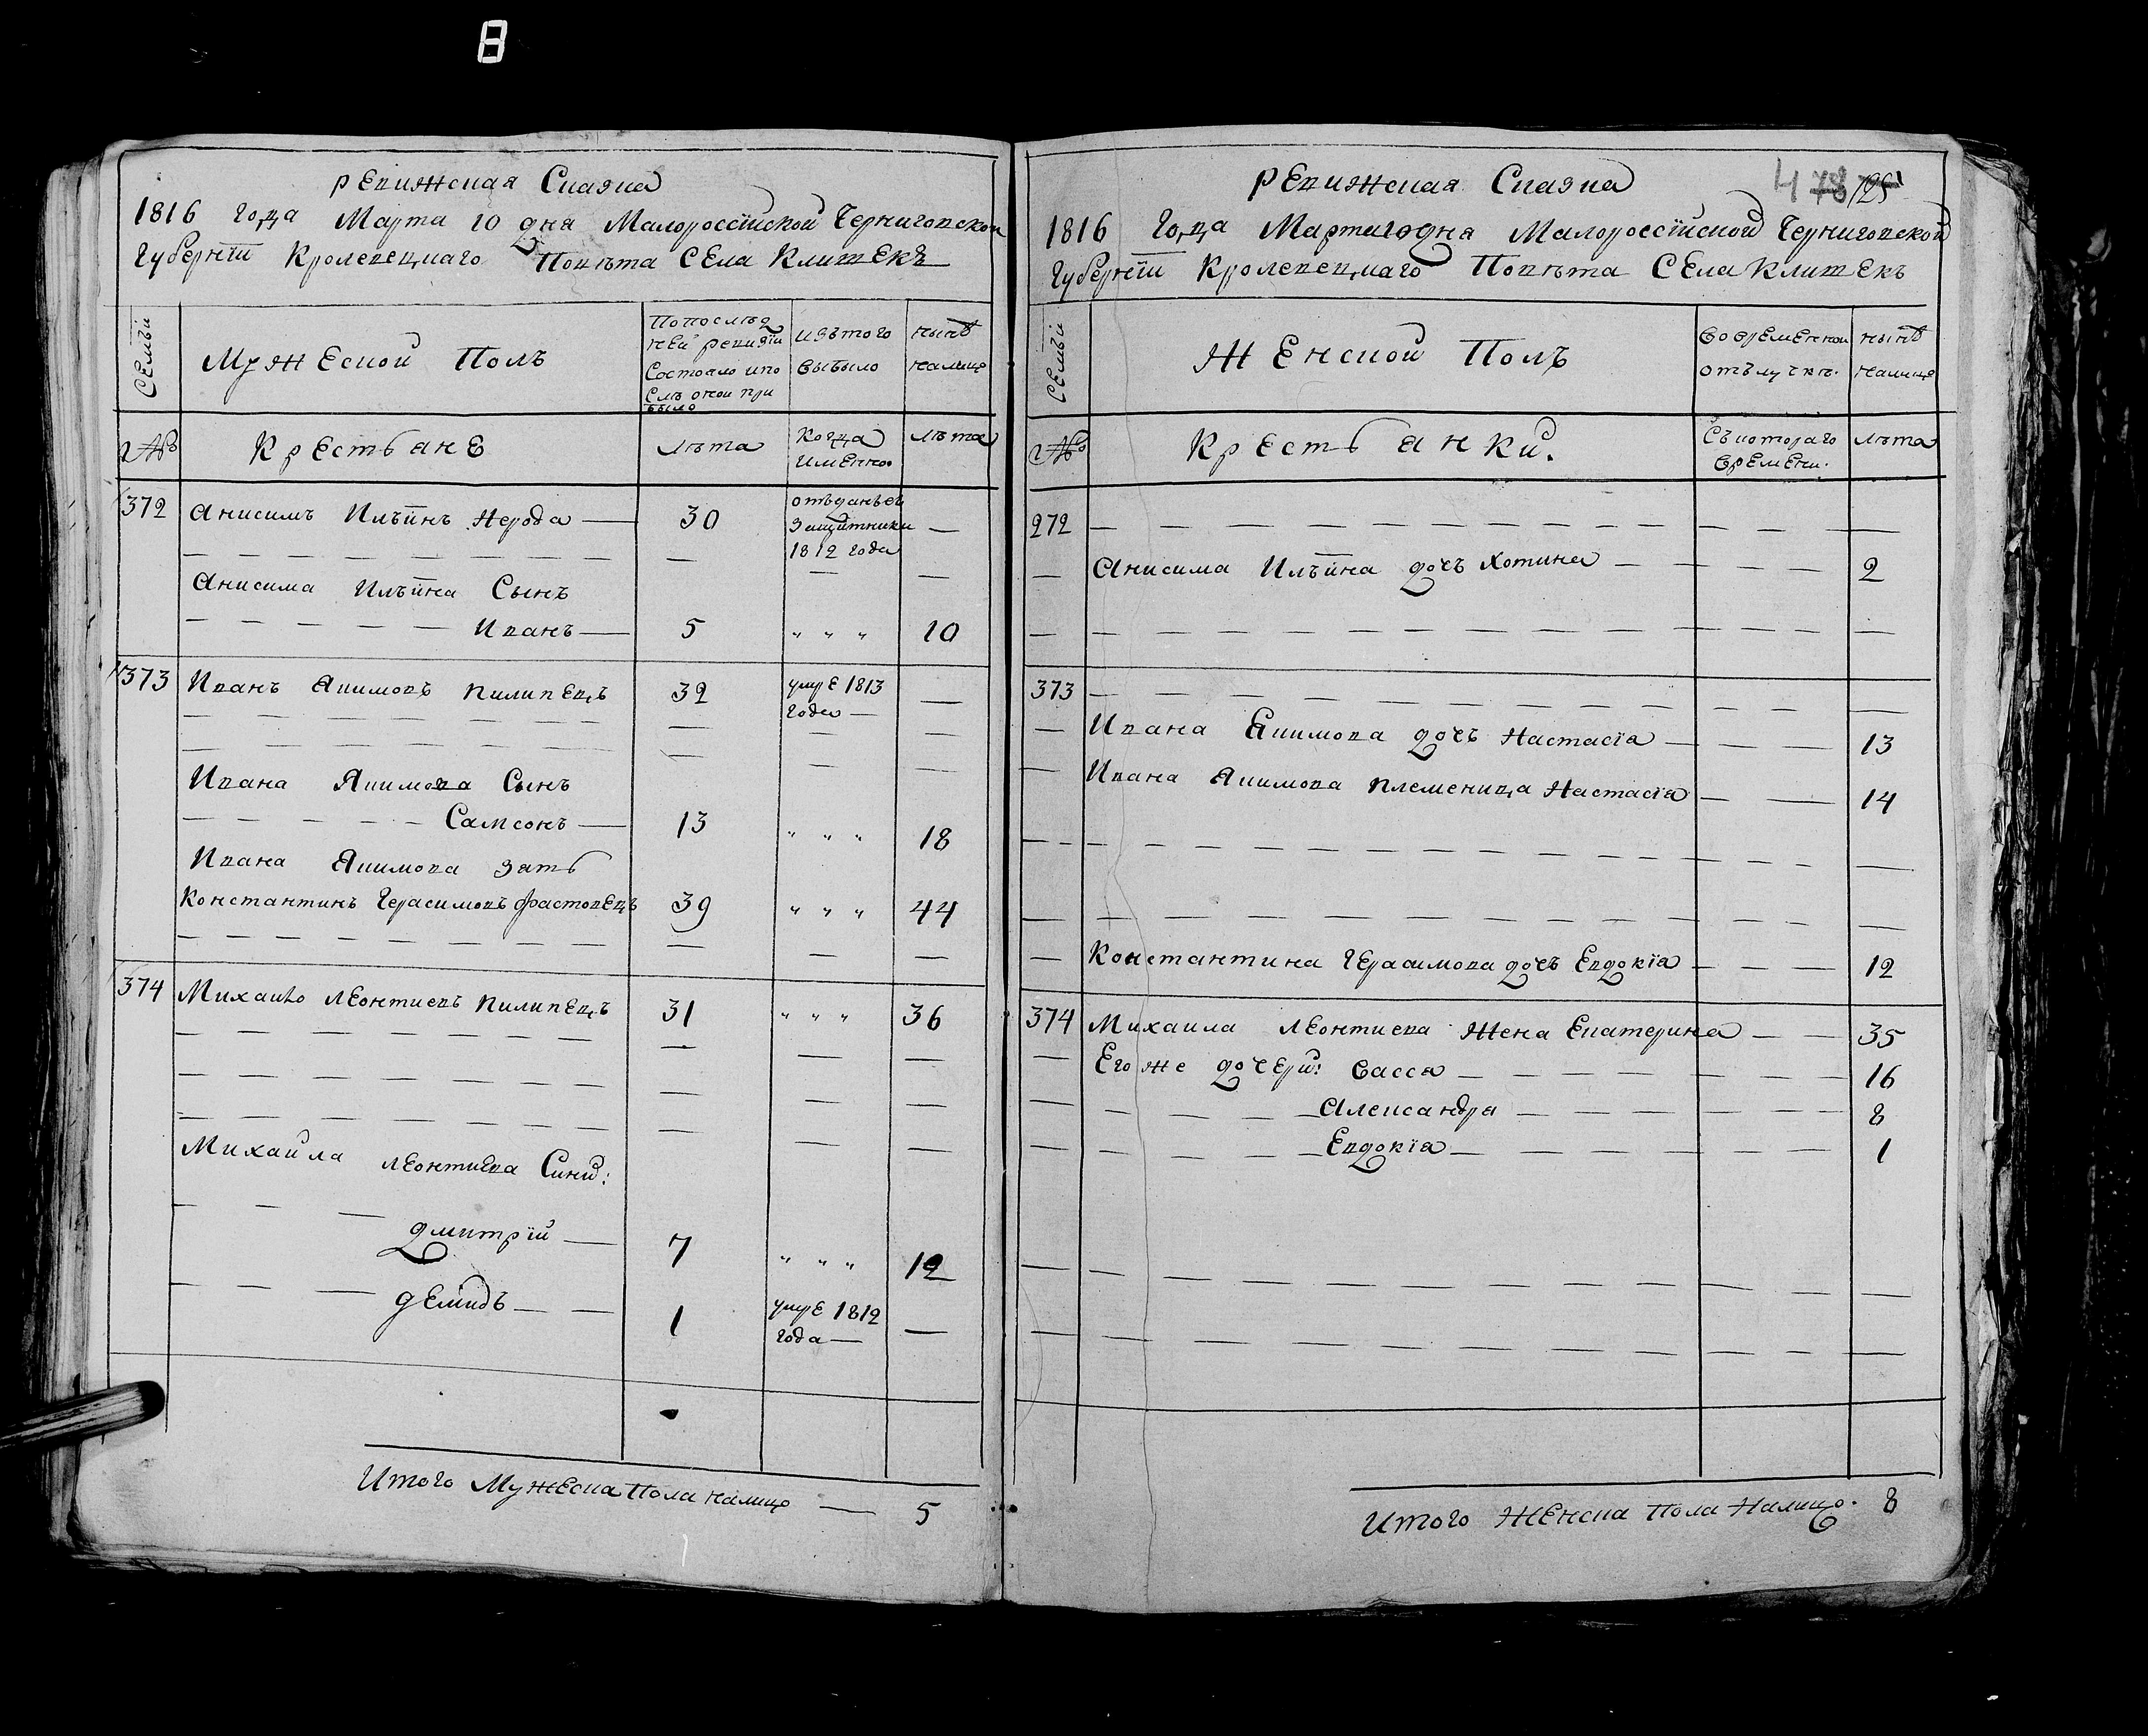 8
Ревижская Сказка
1816 года Марта 10 дня Малороссїиской Черниговской
Губернїи Кролевецкаго Повѣта Села Клишекъ
Семьи
Мужеской Полъ
По послѣд
ней ревизїи
Состояло и по
слѣ оной при
было
изътого
выбыло
нынѣ
налицо
№
Крестьяне
лѣта
Когда
Именно
лѣта
372
Анисимъ Ильїинъ Нерода — 30
отъданъ въ
Защитники
1812 года —
Анисима Ильїина Сынъ
Иванъ — 5 " " " 10
373 Иванъ Якимовъ Пилипецъ 32 умре 1813
года — —
Ивана Якимова Сынъ
Самсонъ — 13 " " " 18
Ивана Якимова зять
Константинъ Герасимовъ Фастовецъ 39 " " " 44
374 Михайло Леонтиевъ Пилипецъ 31 " " " 36
Михайла Леонтиева Сини:
Дмитрїй — 7 " " " 12
Демидъ — — 1 умре 1812
года — —
Итого Мужеска Пола налицо — 5
Ревижская Сказка
478 125
1816 года Марта 10 дня Малороссїйской Черниговской
Губернїи Кролевецкаго Повѣта Села Клишекъ
Семьи
Женской Полъ
Во временной
отълучкѣ.
нынѣ
налицо
№
Крестьянки.
Съ котораго
времени.
лѣта
272
Анисима Ильїина дочъ Хотина — 2
373
Ивана Якимова дочъ Настасїа — 13
Ивана Якимова племеница Настасїа — 14
Константина Герасимова дочъ Евдокїа — 12
374 Михаила Леонтиева Жена Екатерина — 35
Его же дочери: Васса — 16
Александра — 8
Евдокїа — 1
Итого Женска Пола Налицо. 8